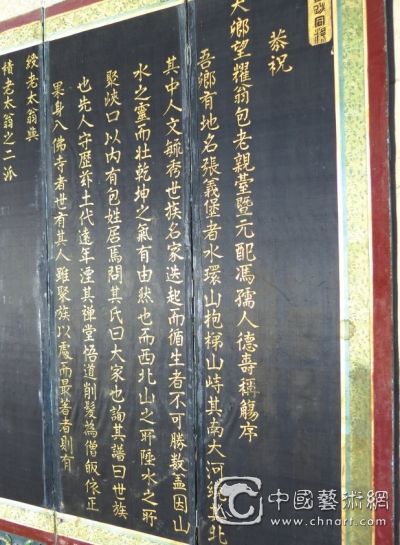 恭祝
大鄉望耀翁包老親臺暨元配馮孺人德壽稱觴序
吾鄉有地名張義堡者水環山抱梯山峙其南大河
其北
其中人文毓秀世族名家迭起而循生者不可勝數蓋因山
水之靈而壯乾坤之氣有由然也而西北山之所陻水之所
聚峽口以內有包姓居焉問其氏曰大家也詢其譜曰世族
也先人守歷茲土代遠年湮其禪堂悟道削髮為僧皈依正
果身入佛寺者世有其人雖聚族以處而最著者則有
綬老太翁與
績老太翁之二派
中國藝術網
www.chnart.com